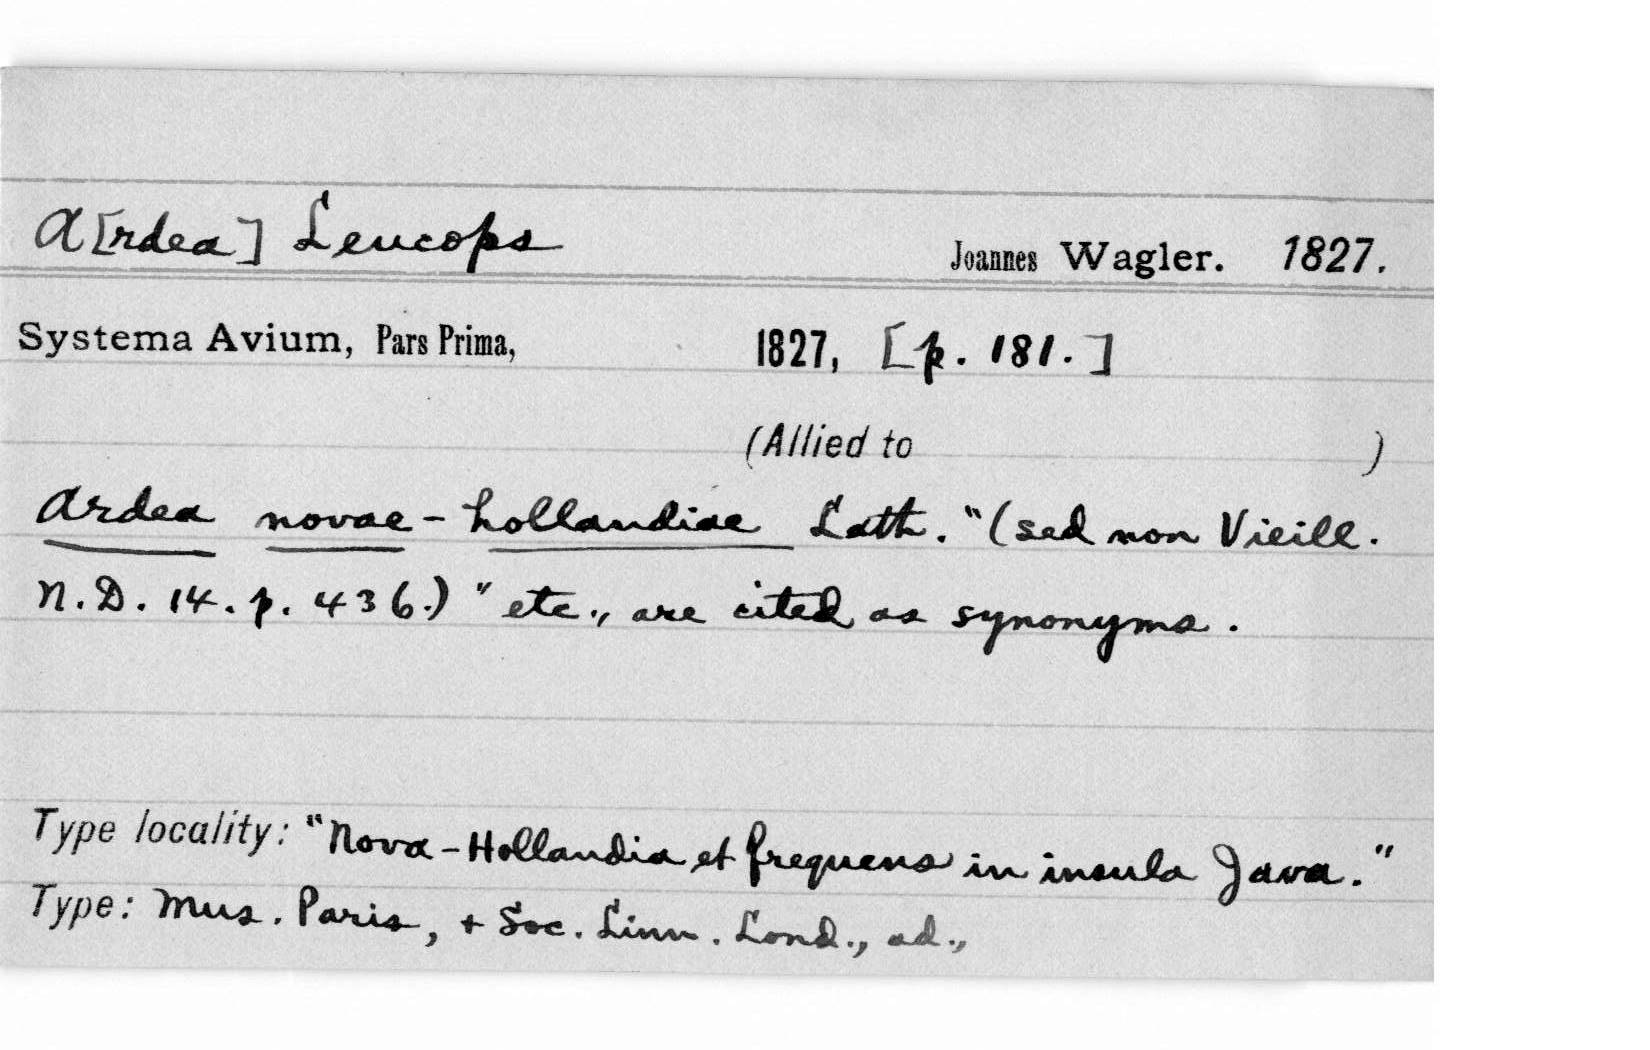 A[rdea] Leucops Joannes Wagler. 1827.
Systema Avium, Pars Prima, 1827, [p. 181.]
(Allied to )
Ardea novae-hollandiae Lath. "(sed non Vieill.
N.D. 14. p. 436.)" etc., are cited as synonyms.
Type locality: "Nova-Hollandia et frequens in insula Java."
Type: Mus. Paris, + Soc. Linn. Lond., ad.,